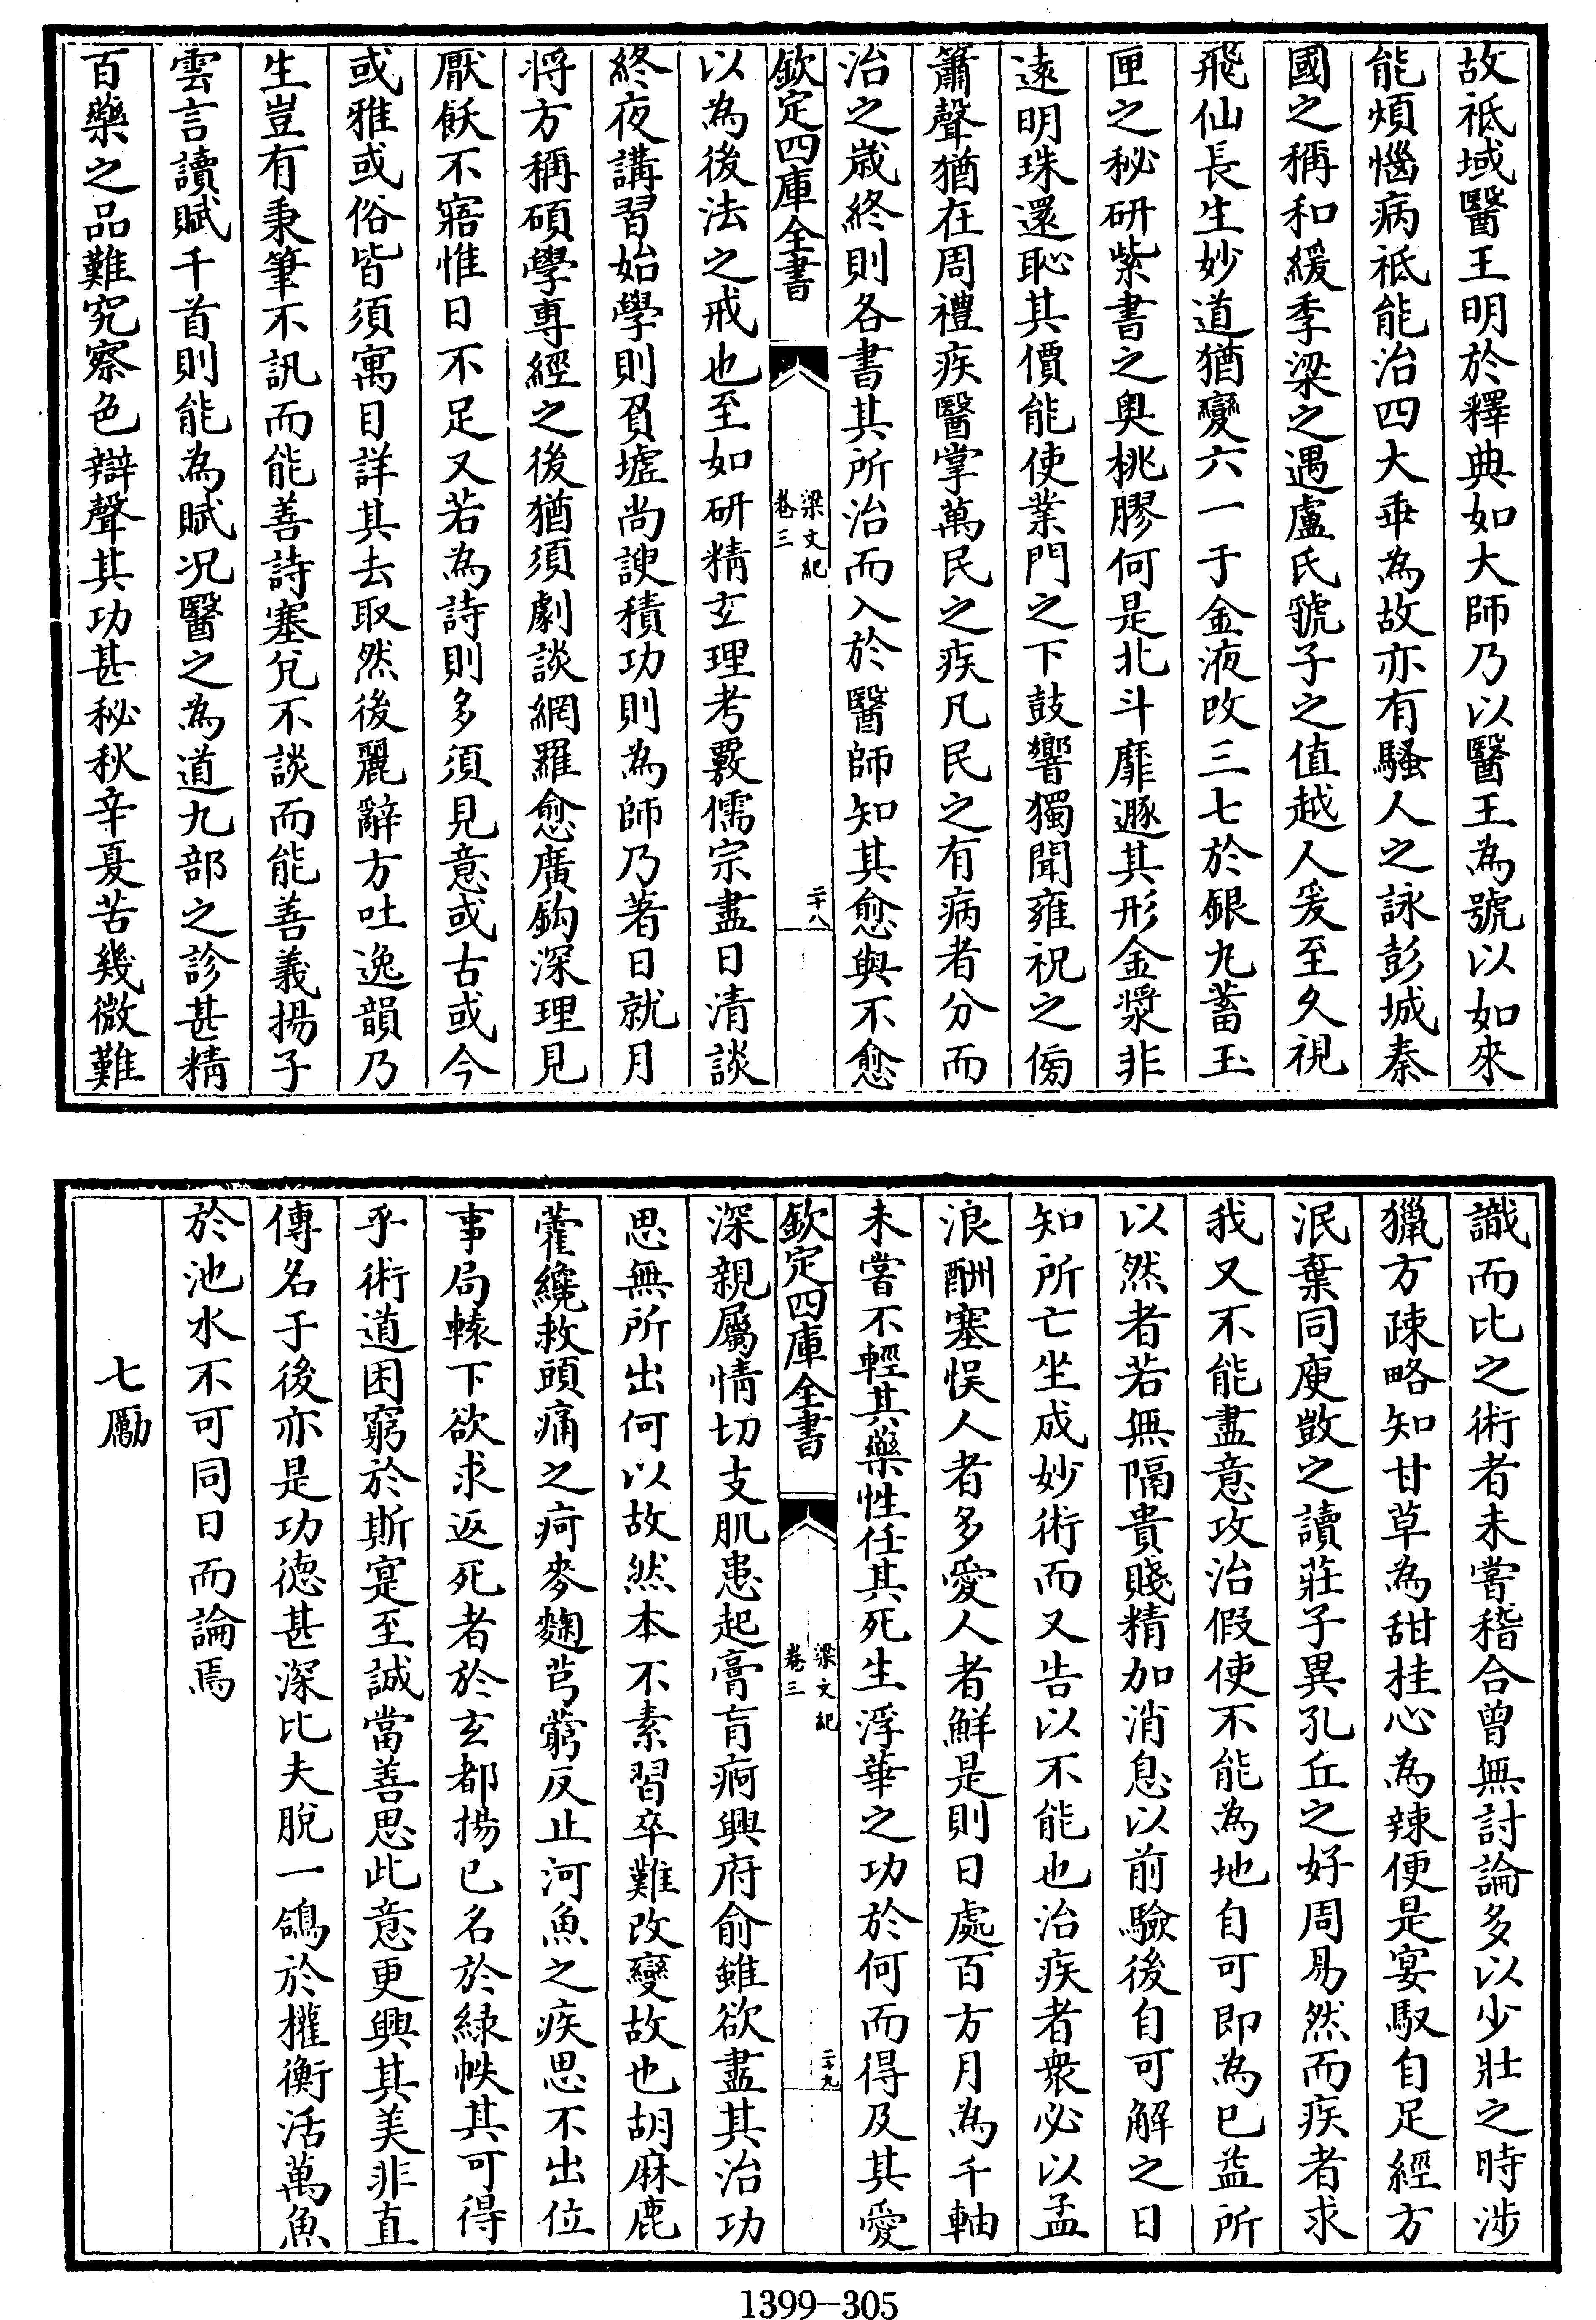 故祗域醫王明於釋典如大師乃以醫王為號以如來
能煩惱病祗能治四大乖為故亦有騷人之詠彭城秦
國之稱和緩季梁之遇盧氏虢子之值越人爰至久視
飛仙長生妙道猶變六一于金液改三七於銀丸蓄玉
匣之秘研紫書之奥桃膠何是北斗靡遯其形金漿非
遠明珠還恥其價能使業門之下鼓響獨聞雍祝之傍
簫聲猶在周禮疾醫掌萬民之疾凡民之有病者分而
治之歲終則各書其所治而入於醫師知其愈與不愈
欽定四庫全書
梁文紀
卷三
二十八
以為後法之戒也至如研精玄理考覈儒宗盡日清談
終夜講習始學則負墟尚諛積功則為師乃著日就月
将方稱碩學專經之後猶須劇談網羅愈廣鈎深理見
厭飫不寤惟日不足又若為詩則多須見意或古或今
或雅或俗皆須寓目詳其去取然後麗辭方吐逸韻乃
生豈有秉筆不訊而能善詩塞兊不談而能善義揚子
雲言讀賦千首則能為賦况醫之為道九部之診甚精
百藥之品難究察色辯聲其功甚秘秋辛夏苦幾微難
識而比之術者未嘗稽合曾無討論多以少壯之時涉
獵方疎略知甘草為甜桂心為辣便是宴馭自足經方
泯棄同庾敳之讀莊子異孔丘之好周易然而疾者求
我又不能盡意攻治假使不能為地自可即為已益所
以然者若無隔貴賤精加消息以前驗後自可解之日
知所亡坐成妙術而又告以不能也治疾者衆必以孟
浪酬塞悞人者多愛人者鮮是則日處百方月為千軸
未嘗不輕其藥性任其死生浮華之功於何而得及其愛
欽定四庫全書
梁文紀
卷三
二十九
深親屬情切支肌患起膏肓痾興府俞雖欲盡其治功
思無所出何以故然本不素習卒難改變故也胡麻鹿
藿纔救頭痛之疴麥麴芎藭反止河魚之疾思不出位
事局轅下欲求返死者於玄都揚已名於緑帙其可得
乎術道困窮於斯寔至誠當善思此意更興其美非直
傳名于後亦是功徳甚深比夫脫一鴿於權衡活萬魚
於池水不可同日而論焉
七勵
1399-305